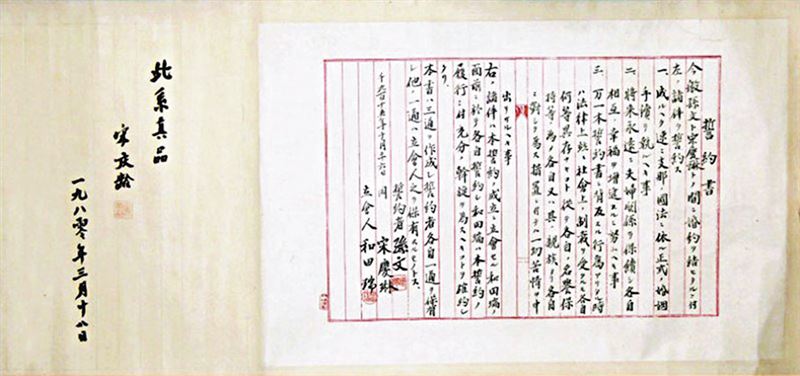 誓約書
今般孫文ト宋慶琳トノ間ニ婚約ヲ結ヒタルニ付
左ノ諸件ヲ誓約ス
一、成ルヘク速ニ支那ノ國法ニ依ル正式ノ婚姻
手續ヲ執ルヘキ事
二、將来永遠ニ夫婦関係ヲ保續シ各自
相互ノ幸福ヲ増進スルニ努ムヘキ事
三、万一本誓約書ニ背反スル行為アリタル時
ハ法律上並ニ社會上ノ制裁ヲ受クルモ各自
何等異存ナキコト從テ各自ノ名譽保
持等ノ為メ各自又ハ其ノ親族ヨリ各自
ニ對シテ為ス措置ニ付テハ一切苦情ヲ申
出サヽルヘキ事
右ノ諸件ハ本誓約ノ成立ニ立會セル和田瑞ノ
面前ニ於テ各自誓約シ和田瑞ハ本誓約ノ
履行ニ付充分ノ斡旋ヲ為スヘキコトヲ確約シ
タリ
本書ハ三通ヲ作成シ誓約者各自一通ヲ保有
シ他ノ一通ハ立會人之ヲ保有スルモノトス
千九百十五年十月二十六日
誓約者 孫文
同 宋慶琳
立會人 和田瑞
此系真品
宋庆龄
一九八零年三月十八日